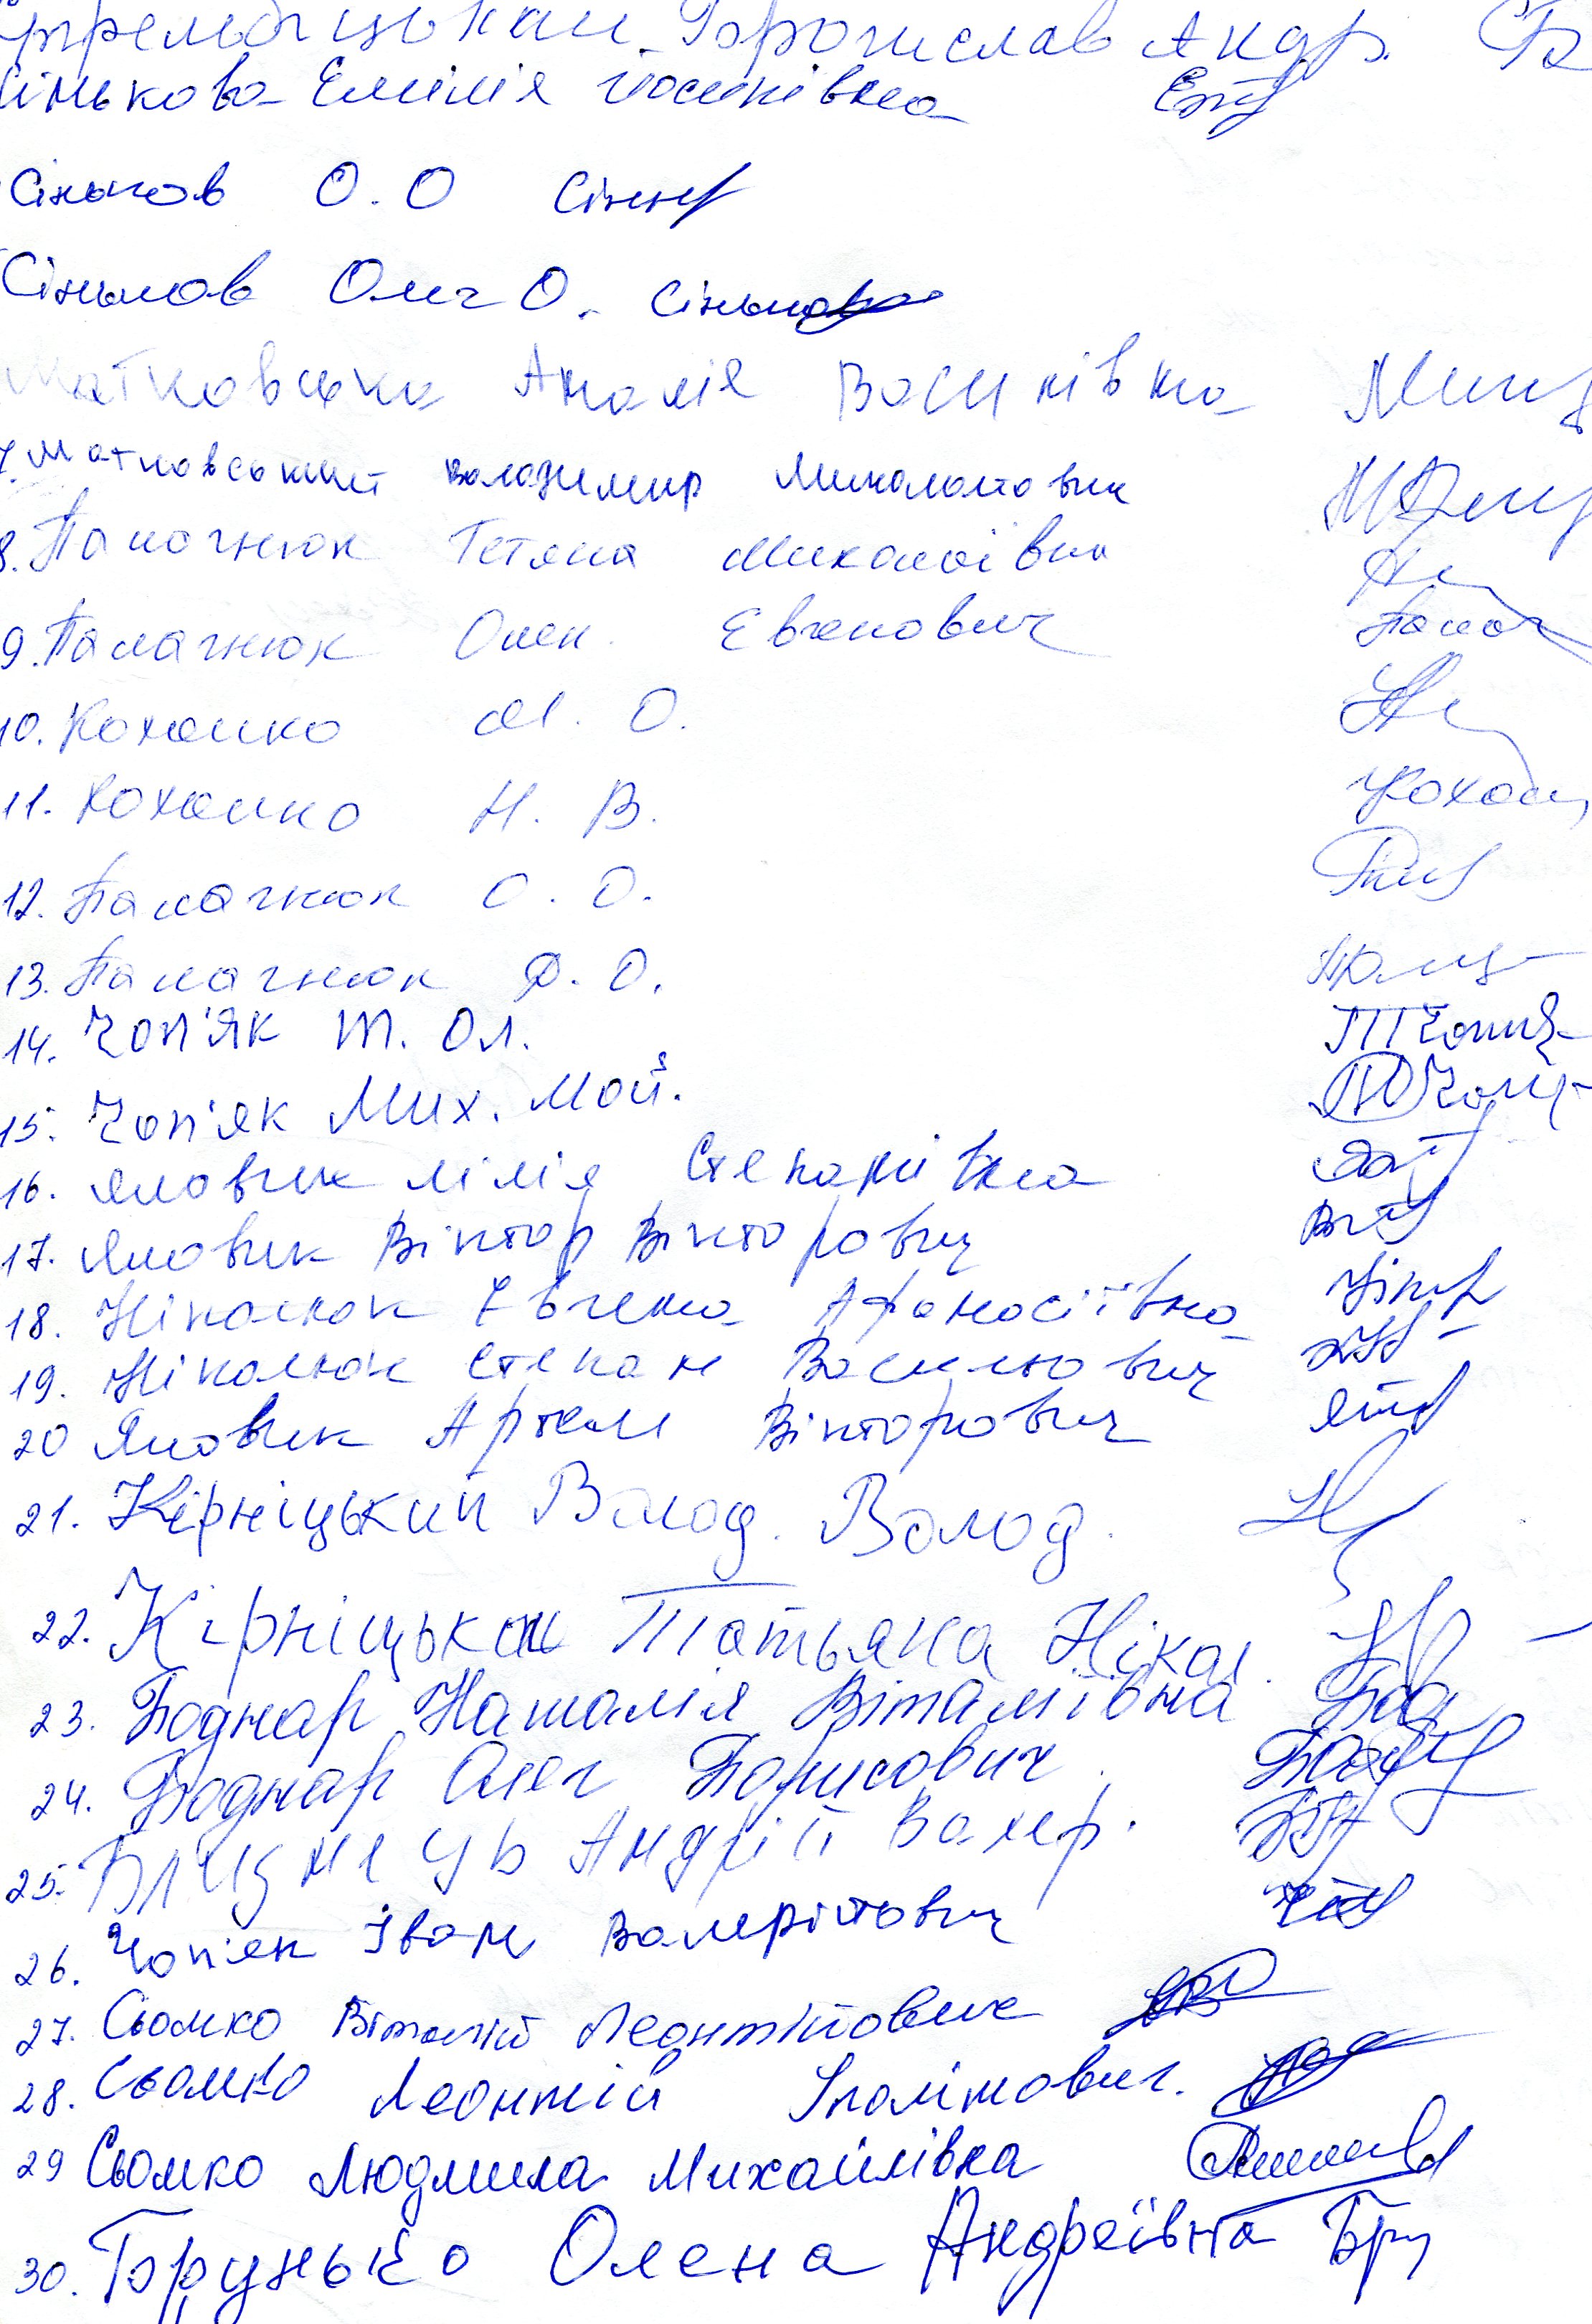 Бронислав Андр. СБ
Сінькова Емілія Йосипівна
Сіньков О.О Сіньк
Сіньков Олег О. Сіньков
Матковська Амалія Василівна
7. Матковський Володимир Миколайович
8. Паламнюк Тетяна Миколаївна
9. Палагнюк Олек. Евгенович Палаг
10. Коханко М. О.
11. Коханко Н. В. Кохан
12. Палагнюк О. О.
13. Палагнюк Д. О.
14. Чоп'як Т. Ол. ТЧопик
15. Чоп'як Мих. Мой.
16. Яловик Лілія Степанівна
17. Яловик Віктор Вікторович
18. Ніколюк Євгена Афанасіївна
19. Ніколюк Степан Васильович
20 Яловик Артем Вікторович
21. Кірніцький Волод. Волод.
22. Кірніцькая Татьяна Нікол.
23. Боднар Наталія Віталіївна Бод
24. Боднар Олег Борисович
25. Близнець Андрій Валер.
26. Чоп'як Іван Валерійович
27. Сьомко Віталій Леонтійович
28. Сьомко Леонтій Іполітович.
29 Сьомко Людмила Михайлівна
30. Брунько Олена Андреївна Бру